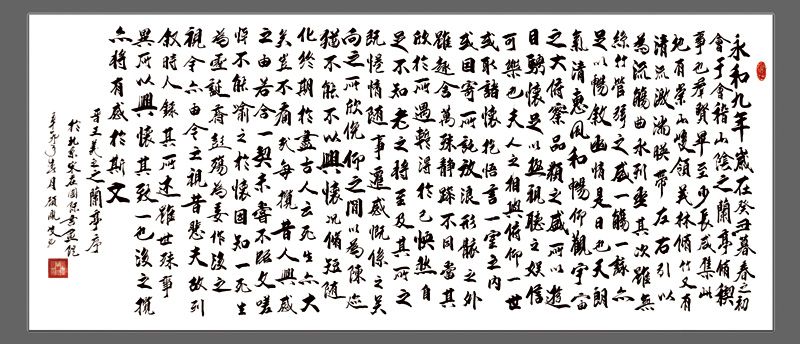 永和九年歲在癸丑暮春之初
會于會稽山陰之蘭亭脩禊
事也群賢畢至少長咸集此
地有崇山峻領茂林脩竹又有
清流激湍暎帶左右引以
為流觴曲水列坐其次雖無
絲竹管弦之盛一觴一詠亦
足以暢敘幽情是日也天朗
氣清惠風和暢仰觀宇宙
之大俯察品類之盛所以遊
目騁懷足以極視聽之娛信
可樂也夫人之相與俯仰一世
或取諸懷抱悟言一室之內
或因寄所託放浪形骸之外
雖趣舍萬殊靜躁不同當其
欣於所遇暫得於己快然自
足不知老之將至及其所之
既惓情隨事遷感慨係之矣
向之所欣俛仰之間以為陳迹
猶不能不以興懷況脩短隨
化終期於盡古人云死生亦大
矣豈不痛哉每攬昔人興感
之由若合一契未嘗不臨文嗟
悼不能喻之於懷固知一死生
為虛誕齊彭殤為妄作後之
視今亦由今之視昔悲夫故列
敘時人錄其所述雖世殊事
異所以興懷其致一也後之攬
亦將有感於斯文
晉王羲之之蘭亭序
於北京
辛卯年春月